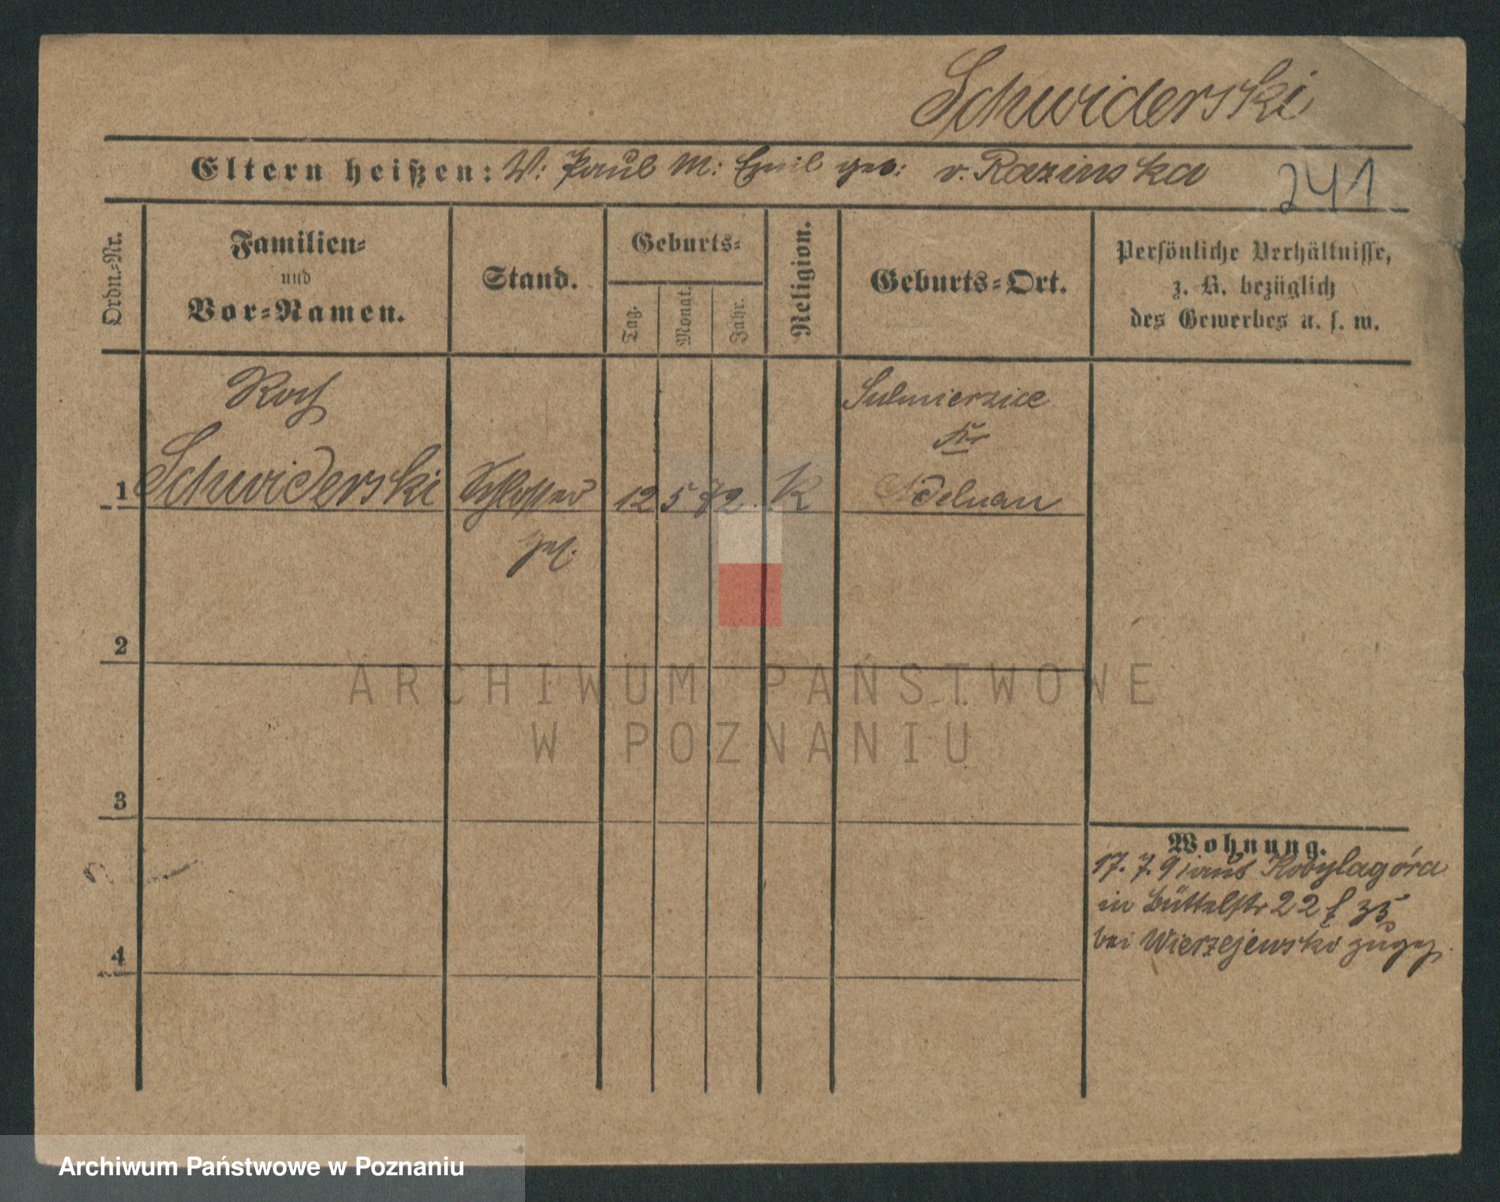 Schwiderski
Eltern heißen: V: Paul M: Emil geb: v. Razinska
241
Ordn.-Nr.
Familien-
und
Vor-Namen.
Stand.
Geburts-
Tag.
Monat.
Jahr.
Religion.
Geburts-Ort.
Persönliche Verhältnisse,
z. B. bezüglich
des Gewerbes u. s. w.
Roch
1 Schwiderski
Schlosser
Ges.
12 5 72
K
Sulmierzice
Kr
Adelnau
2
3
4
Wohnung.
17. 7. 91 aus Kobylagóra
in Büttelstr 22
bei Wierzejewski zugez.
ARCHIWUM PAŃSTWOWE
W POZNANIU
Archiwum Państwowe w Poznaniu